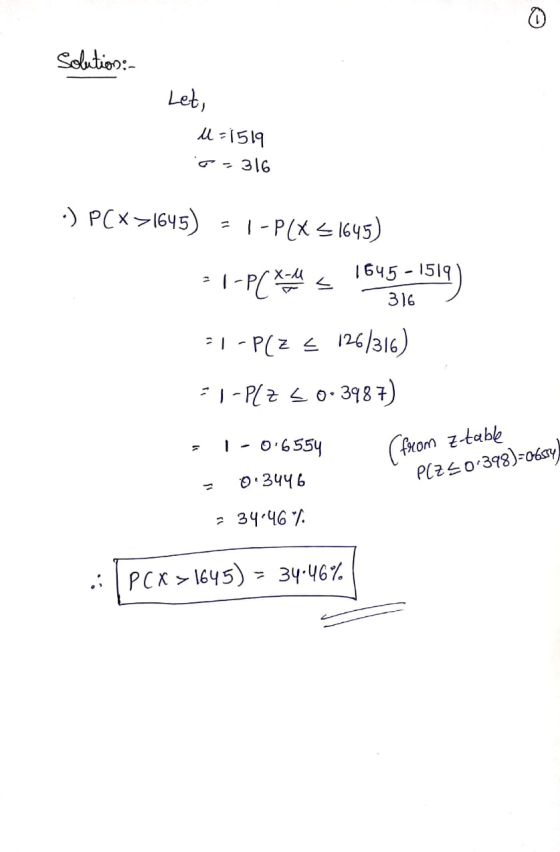 ①
Solution:-
Let,
μ = 1519
σ = 316
•) P(X > 1645) = 1 - P(X ≤ 1645)
= 1 - P( (X-μ)/σ ≤ (1645 - 1519)/316 )
= 1 - P(Z ≤ 126/316)
= 1 - P(Z ≤ 0.3987)
= 1 - 0.6554 (from z-table
P(Z ≤ 0.398) = 0.6554)
= 0.3446
= 34.46 %
∴ P(X > 1645) = 34.46%